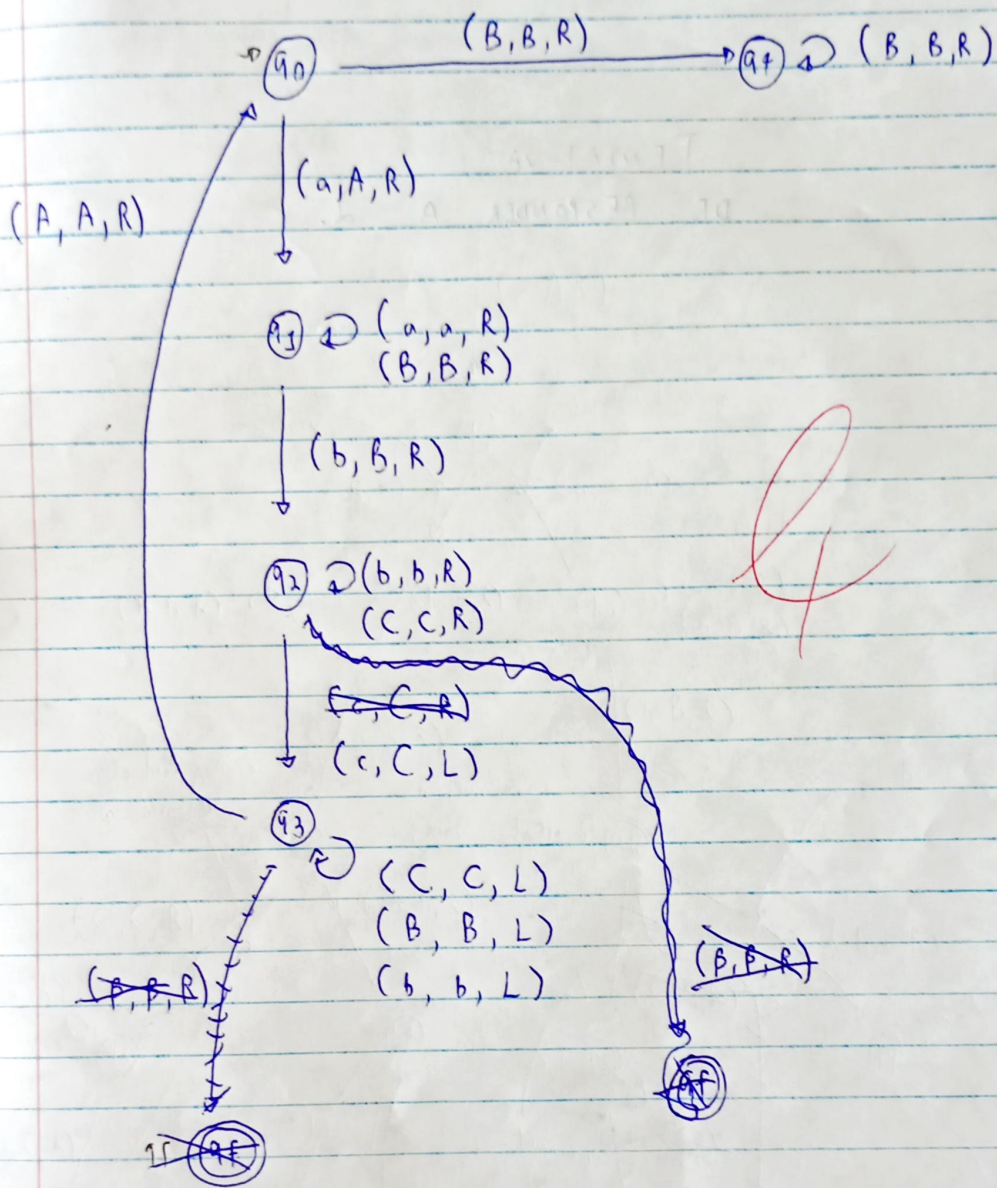 (B, B, R)
q0
q4 (B, B, R)
(a, A, R)
(A, A, R)
q1 (a, a, R)
(B, B, R)
(b, B, R)
q2 (b, b, R)
(C, C, R)
(c, C, R)
(c, C, L)
q3
(C, C, L)
(B, B, L)
(b, b, L)
(β, β, R)
(β, β, R)
qf
qf